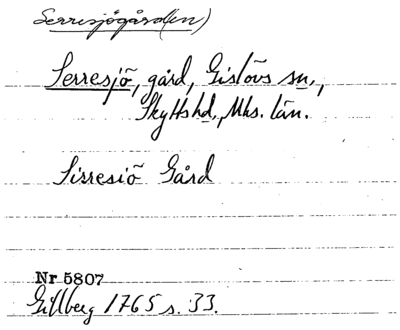 Serresjögård(en)
Serresjö, gård, Gislövs sn.,
Skytts hd., Mhs. län.
Sirresiö Gård
Nr 5807
Gillberg 1765 s. 33.